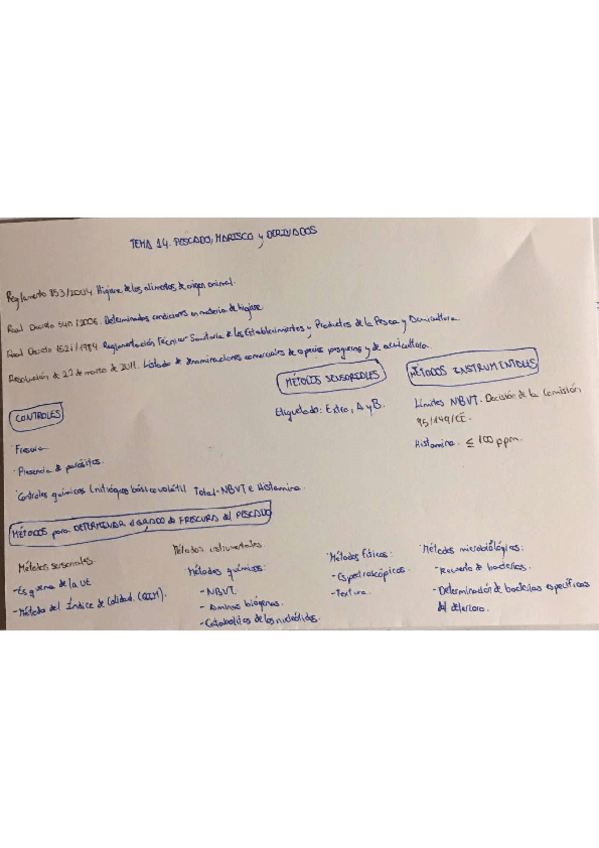 TEMA 14. PESCADO, MARISCO y DERIVADOS
Reglamento 853/2004 Higiene de los alimentos de origen animal.
Real Decreto 640/2006. Determinadas condiciones en materia de higiene
Real Decreto 1521/1984 Reglamentación Técnico Sanitaria de los Establecimientos y Productos de la Pesca y Acuicultura
Resolución de 22 de marzo de 2011. Listado de denominaciones comerciales de especies pesqueras y de acuicultura.
CONTROLES
· Frescura
· Presencia de parásitos.
· Controles químicos (nitrógeno básico volátil Total-NBVT e Histamina.
MÉTODOS SENSORIALES
Etiquetado: Extra, A y B.
MÉTODOS INSTRUMENTALES
Límites NBVT. Decisión de la Comisión
95/149/CE.
Histamina. ≤ 100 ppm.
MÉTODOS para DETERMINAR el GRADO de FRESCURA del PESCADO
Métodos sensoriales
- Esquema de la UE
- Método del Índice de Calidad. (QIM).
Métodos instrumentales.
Métodos químicos:
- NBVT.
- Aminas biógenas.
- Catabolitos de los nucleótidos.
Métodos físicos:
- Espectroscópicos.
- Textura.
Métodos microbiológicos:
- Recuento de bacterias.
- Determinación de bacterias específicas
del deterioro.